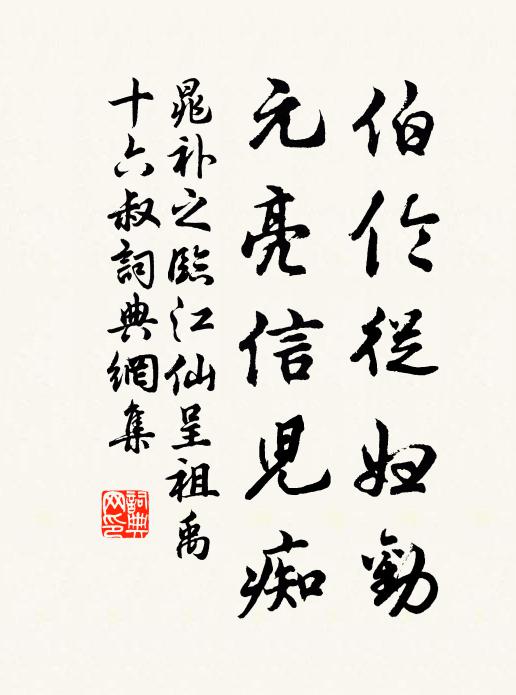 伯伶從婦勸
元亮信児痴
晁补之臨江仙呈祖禹
十六叔詞典網集
詞典网印